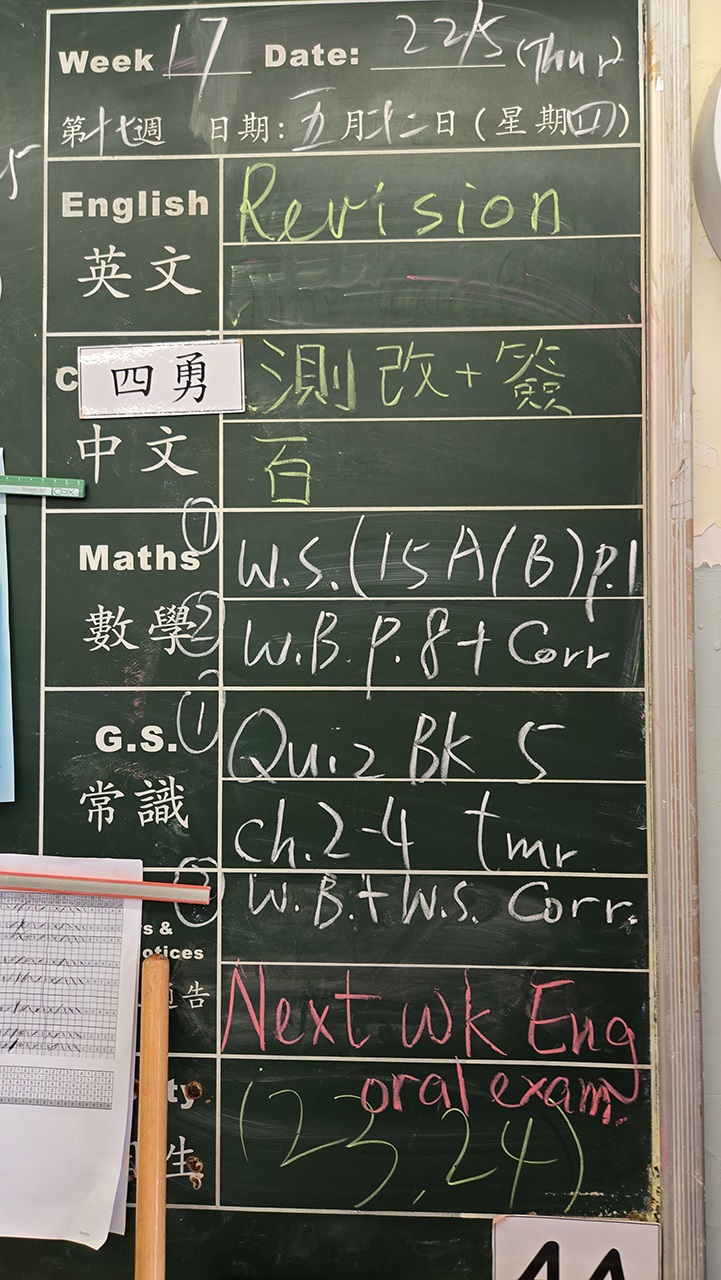 Week 17 Date: 22/5 (Thur)
第十七週 日期:五月廿二日(星期四)
English Revision
英文
四勇 測改+簽
中文 百
Maths ① W.S.(15A(B)p.1
數學 ② W.B.p.8+Corr
G.S. ① Quiz Bk 5
常識 ch.2-4 tmr
② W.B.+W.S. Corr.
s &
otices
通告 Next wk Eng
oral exam
ty (23,24)
生